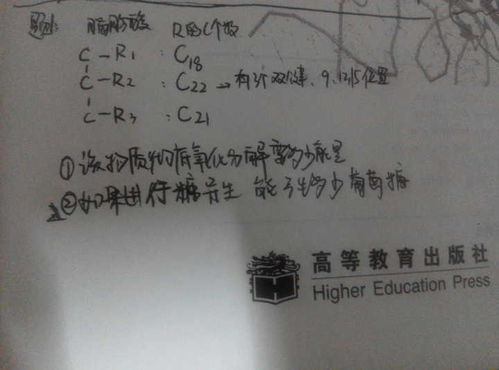 脂肪酸 R的C个数
C-R1 : C18
C-R2 : C22 → 有 双键、9、12、15位置
C-R3 : C21
①该物质彻底氧化分解 多少能量
②如果进行糖异生 能产生多少葡萄糖
高等教育出版社
Higher Education Press